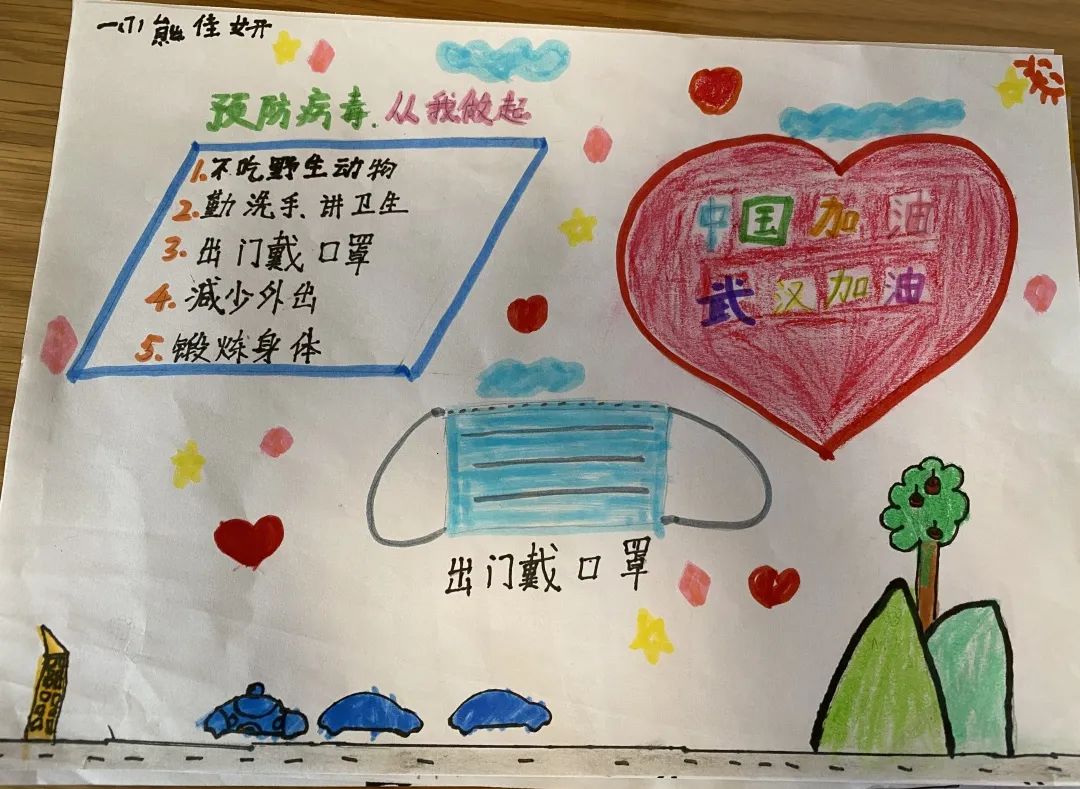 一(1)熊佳妍
预防病毒.从我做起
1.不吃野生动物
2.勤洗手、讲卫生
3.出门戴口罩
4.减少外出
5.锻炼身体
中国加油
武汉加油
出门戴口罩